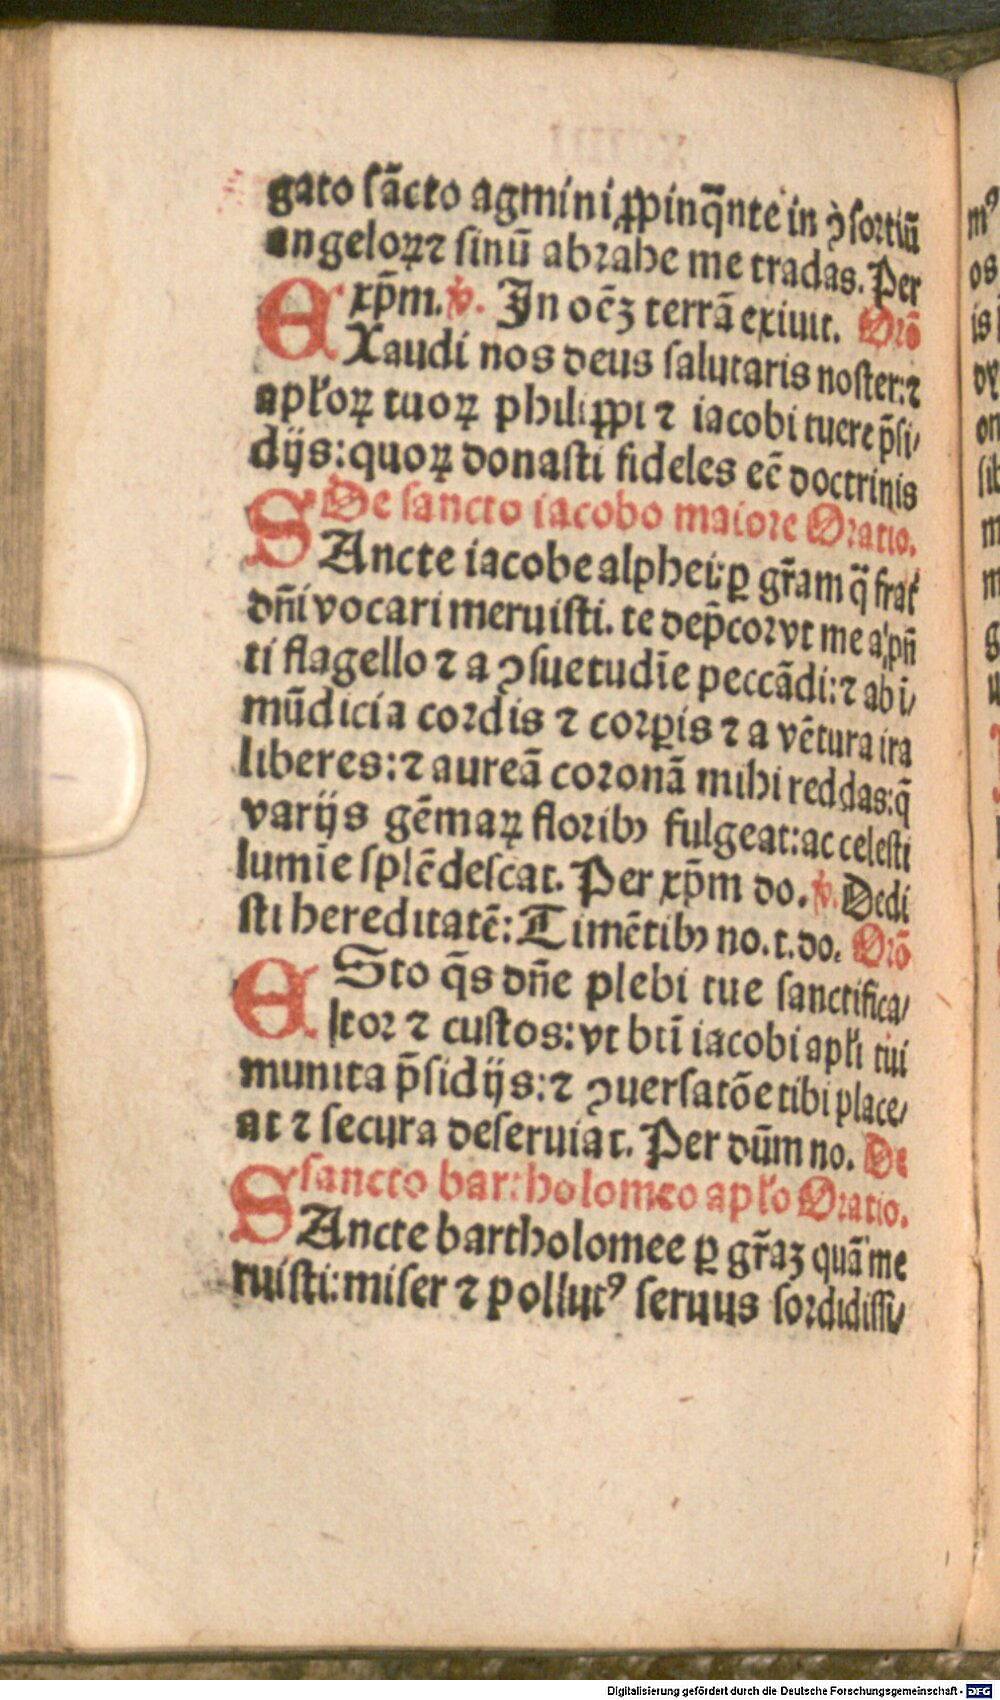 gato sācto agmini ꝓpinq̄nte in ꝯsortiū
angeloꝝ ⁊ sinū abrahe me tradas. Per
xp̄m. ℣. In oēꝫ terrā exiuit. Orō
EXaudi nos deus salutaris noster: ⁊
apl'oꝝ tuoꝝ philiꝓpi ⁊ iacobi tuere p̄si/
dijs: quoꝝ donasti fideles eē doctrinis
De sancto iacobo maiore Oratio.
SAncte iacobe alphei: ꝑ gr̄am q̄ frat̄
dn̄i vocari meruisti. te dep̄cor vt me a pn̄
ti flagello ⁊ a ꝯsuetudīe peccādi: ⁊ ab ī/
mūdicia cordis ⁊ corꝑis ⁊ a vētura ira
liberes: ⁊ aureā coronā mihi reddas: q̄
varijs gēmaꝝ floribꝰ fulgeat: ac celesti
lumīe splēdescat. Per xp̄m do. ℣. Dedi
sti hereditatē: Timētibꝰ no. t. do. Orō
ESto q̄s dn̄e plebi tue sanctifica/
tor ⁊ custos: vt bti̅ iacobi apl'i tui
munita p̄sidijs: ⁊ ꝯuersatōe tibi place/
at ⁊ secura deseruiat. Per dūm no. De
sancto bartholomeo apl'o Oratio.
SAncte bartholomee ꝑ gr̄aꝫ quā me
ruisti: miser ⁊ pollutꝰ seruus sordidissi/
Digitalisierung gefördert durch die Deutsche Forschungsgemeinschaft - DFG